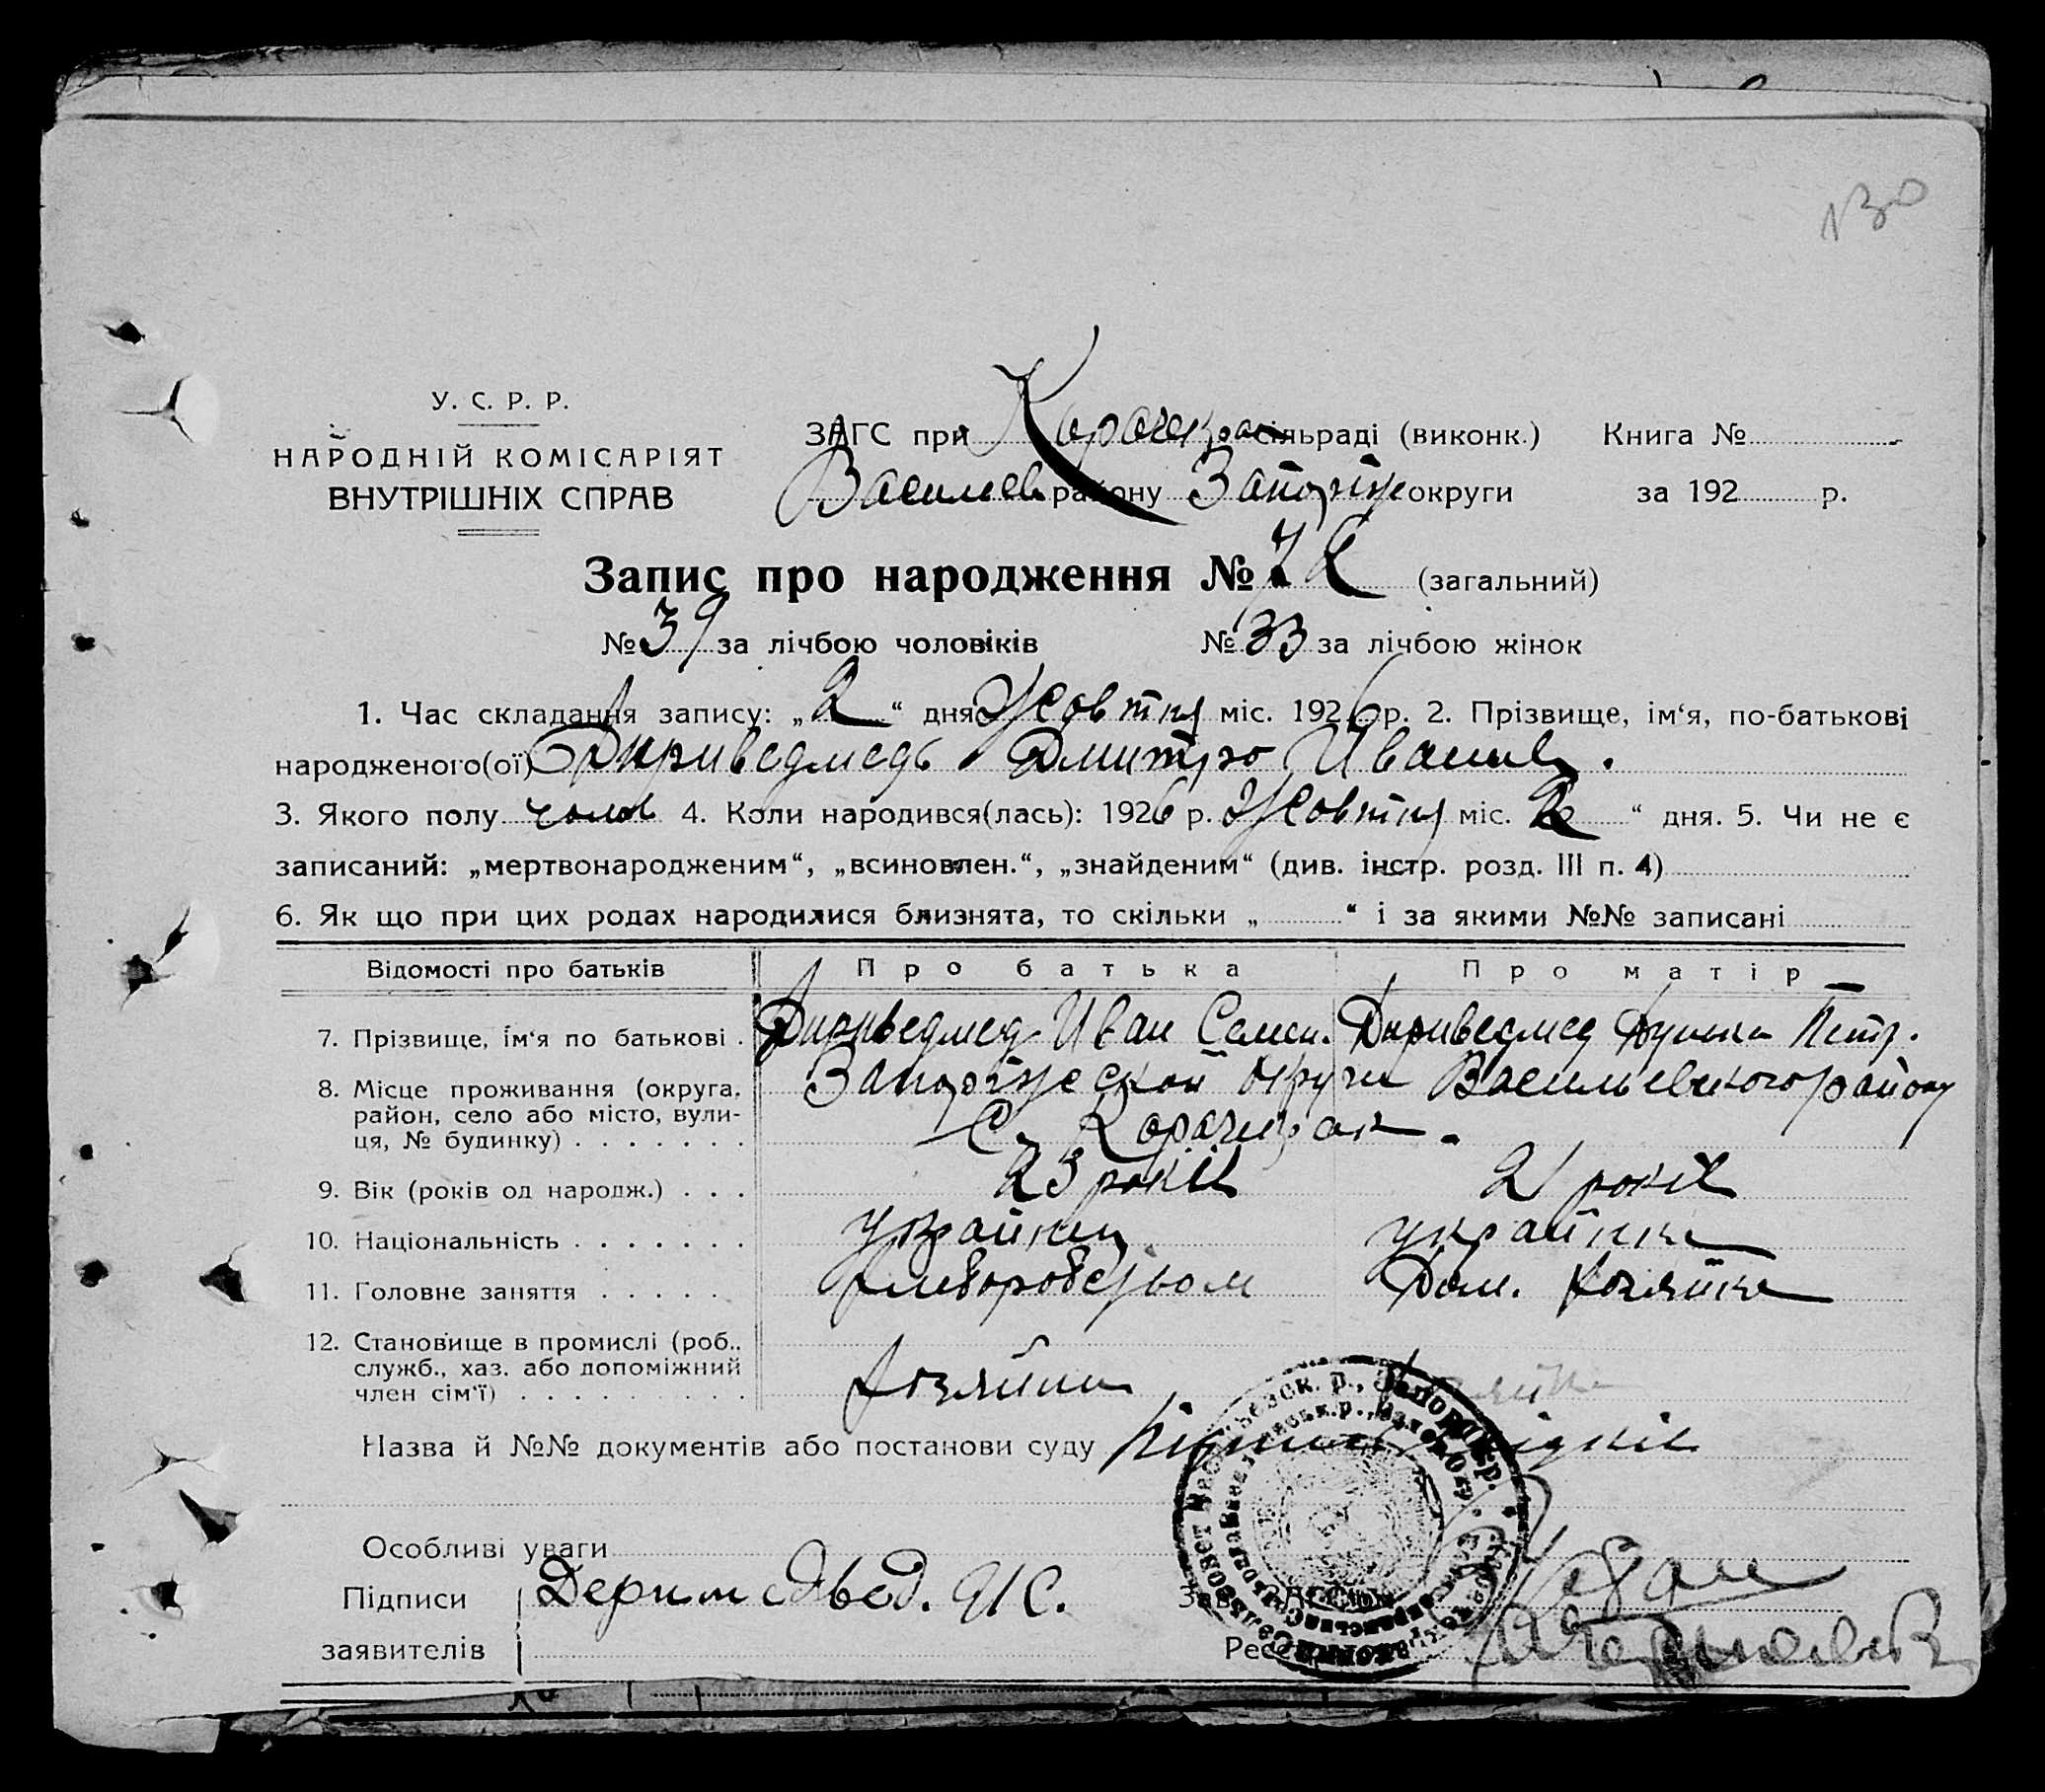 130
У. С. Р. Р.
НАРОДНІЙ КОМІСАРІЯТ
ВНУТРІШНІХ СПРАВ
ЗАГС при Карачекрак сільраді (виконк.) Книга №
Василев району Запоріж округи за 192 р.
Запис про народження № 72 (загальний)
№ 39 за лічбою чоловіків № 33 за лічбою жінок
1. Час складання запису: „2“ дня Жовтня міс. 1926 р. 2. Прізвище, ім‘я, по-батькові
народженого(ої) Дириведмедь Дмитро Иванов.
3. Якого полу чолов 4. Коли народився(лась): 1926 р. Жовтня міс. 2 “ дня. 5. Чи не є
записаний: „мертвонародженим“, „всиновлен.“, „знайденим“ (див. інстр. розд. III п. 4)
6. Як що при цих родах народилися близнята, то скільки „ “ і за якими №№ записані
Відомості про батьків Про батька Про матір
7. Прізвище, ім‘я по батькові . Дириведмед Иван Семен. Дириведмед Петр.
8. Місце проживання (округа, Запоріжской округи Васильевского району
район, село або місто, вули-
ця, № будинку) . . . . . . . С. Карачекрак.
9. Вік (років од народж.) . . . 23 років 21 років
10. Національність . . . . . . . Украинец украинка
11. Головне заняття . . . . . хлеборобством Дом. хозяйка
12. Становище в промислі (роб.,
служб., хаз. або допоміжний
член сім‘ї) . . . . . . . . . хозяин
Назва й №№ документів або постанови суду
Особливі уваги
Підписи Деримедвед. И.С. Зав. ЗАГСом
заявителів Реєстр